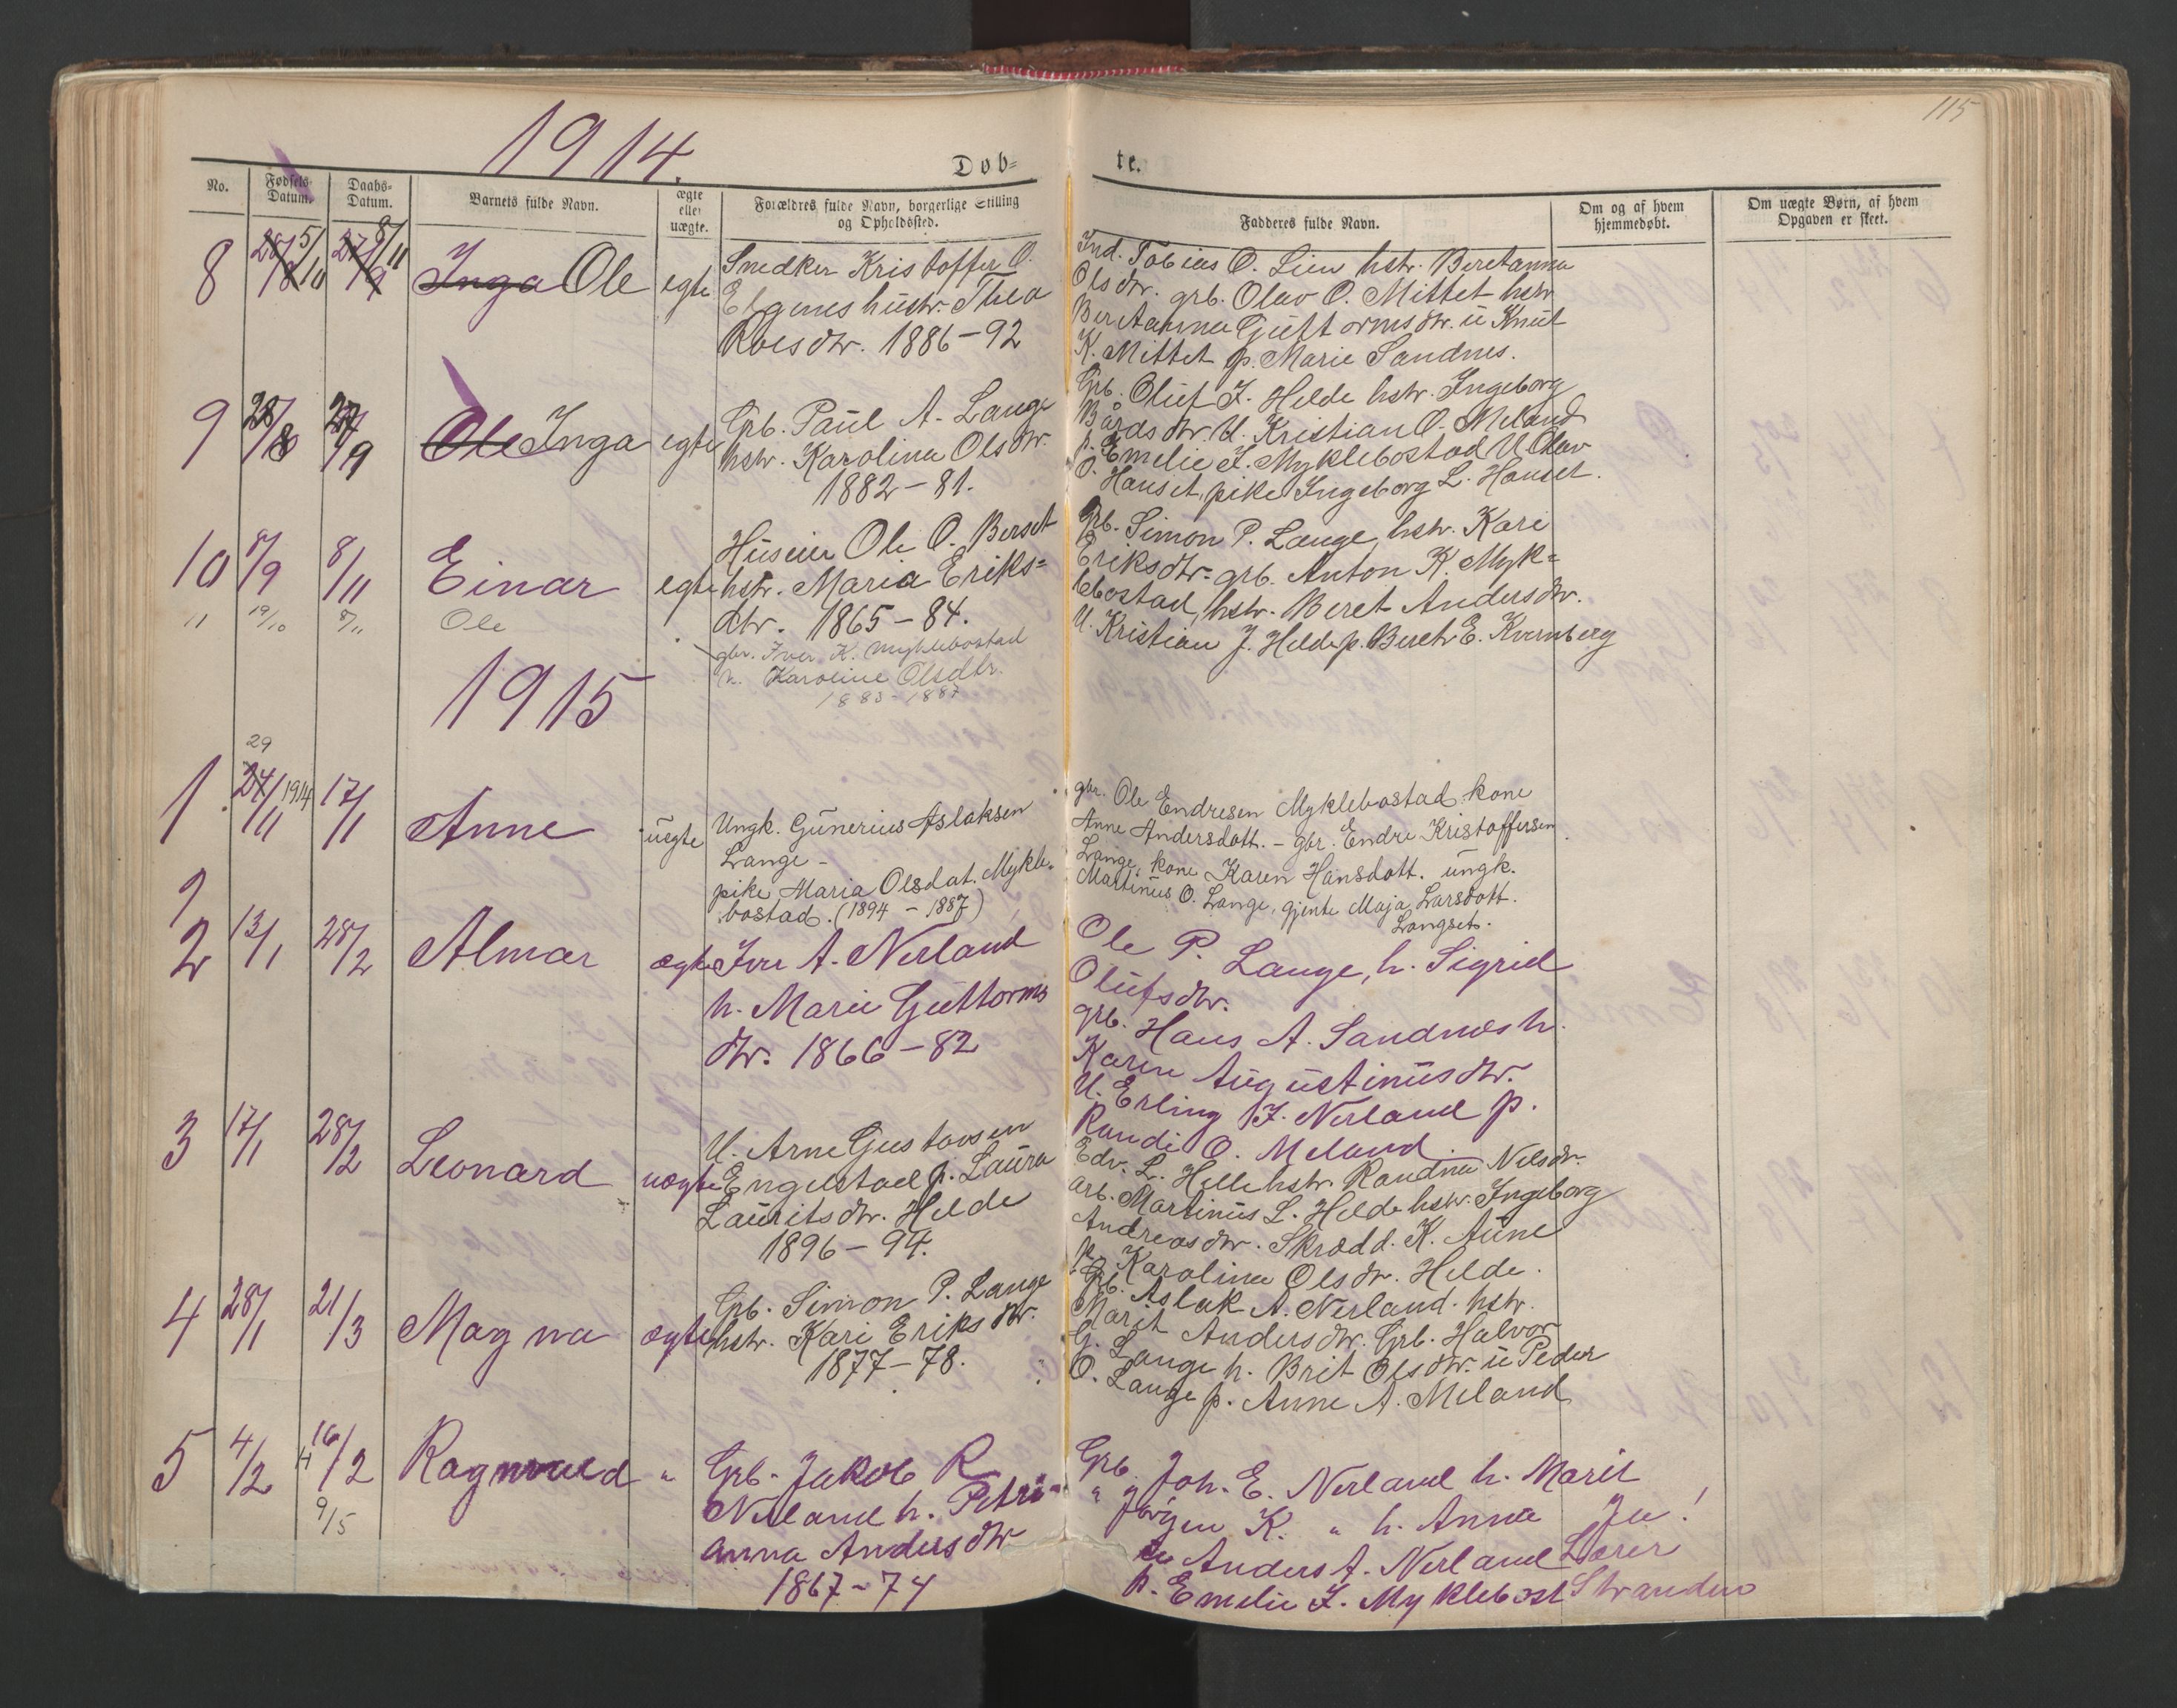 115
1914.
Døb=
te.
No.
Fødsels-
Datum.
Daabs=
Datum.
Barnets fulde Navn.
ægte
eller
uægte.
Forældres fulde Navn, borgerlige Stilling
og Opholdssted.
Fadderes fulde Navn.
Om og af hvem
hjemmedøbt.
Om uægte Børn, af hvem
Opgaven er skeet.
8 28/8 5/10 27/9 8/11 Inga Ole egte
Snedker Kristoffer O.
Elgenes hustr. Thea
Roesdtr. 1886-92
Ind. Tobias O. Lien hstr. Beretanna
Olsdtr. grb. Olav O. Mittet hstr.
Beretanna Guttormsdtr. u Knut
K. Mittet p. Marie Sandnes.
9 28/8 27/9 Ole Inga egte
Grb. Paul A. Lange
hstr. Karolina Olsdtr.
1882-81.
Grb. Oluf J. Helde hstr. Ingeborg
Bårdsdtr. U. Kristian O. Meland
p. Emelie I. Myklebostad U Olav
O. Hanset, pike Ingeborg L. Hanset.
10 8/9 8/11 Einar egte
Huseier Ole O. Berset
hstr. Maria Eriks=
dtr. 1865-84.
Grb. Simon P. Lange, hstr. Kari
Eriksdtr. grb. Anton K. Myk=
lebostad, hstr. Beret Andersdtr.
U. Kristian J. Helde p. Beret E. Kvernberg
11 19/10 8/11 Ole
gbr. Iver K. Myklebostad
h. Karoline Olsdtr.
1883-1887
1915
1 29 24/11 1914 17/1 Anne uegte
Ungk. Gunerius Aslaksen
Lange -
pike Maria Olsdat. Mykle-
bostad. (1894 - 1887)
gbr. Ole Endresen Myklebostad kone
Anne Andersdatt. - gbr. Endre Kristoffersen
Lange, kone Karen Hansdatt. ungk.
Martinus O. Lange, gjente Maja Larsdott.
Langset.
2 13/1 28/2 Almar ægte
Iver A. Nerland
h. Marie Guttorms
dtr. 1866-82
Ole P. Lange, h. Sigrid
Olufsdtr.
grb. Hans A. Sandnes h.
Karen Augustinusdtr.
U. Erling I. Nerland p.
Randi O. Meland
3 17/1 28/2 Leonard uægte
U. Arne Gustavsen
Engelstad p. Laura
Lauritsdtr. Helde
1896-94.
Edv. L. Helle hstr. Randina Nelsdtr.
arb. Martinus L. Helde hstr. Ingeborg
Andreasdtr. Skrædd. K. Aune
p. Karolina Olsdtr. Helde.
4 28/1 21/3 Magna ægte
Grb. Simon P. Lange
hstr. Kari Eriksdtr.
1877-78.
Grb. Aslak A. Nerland. hstr.
Marit Andersdtr. Grb. Halvor
G. Lange h. Brit Olsdtr. u Peder
O. Lange p. Anne A. Meland
5 4/2 H 16/2 Ragnvald "
9/5
Grb. Jakob R
Nerland h. Petri-
anna Andersdtr
1867-74
Grb. Joh. E. Nerland h. Marit
" Jørgen K. " h. Anna
u Anders A. Nerland
p. Emelie I. Myklebost
Ja!
Lærer
Stranden